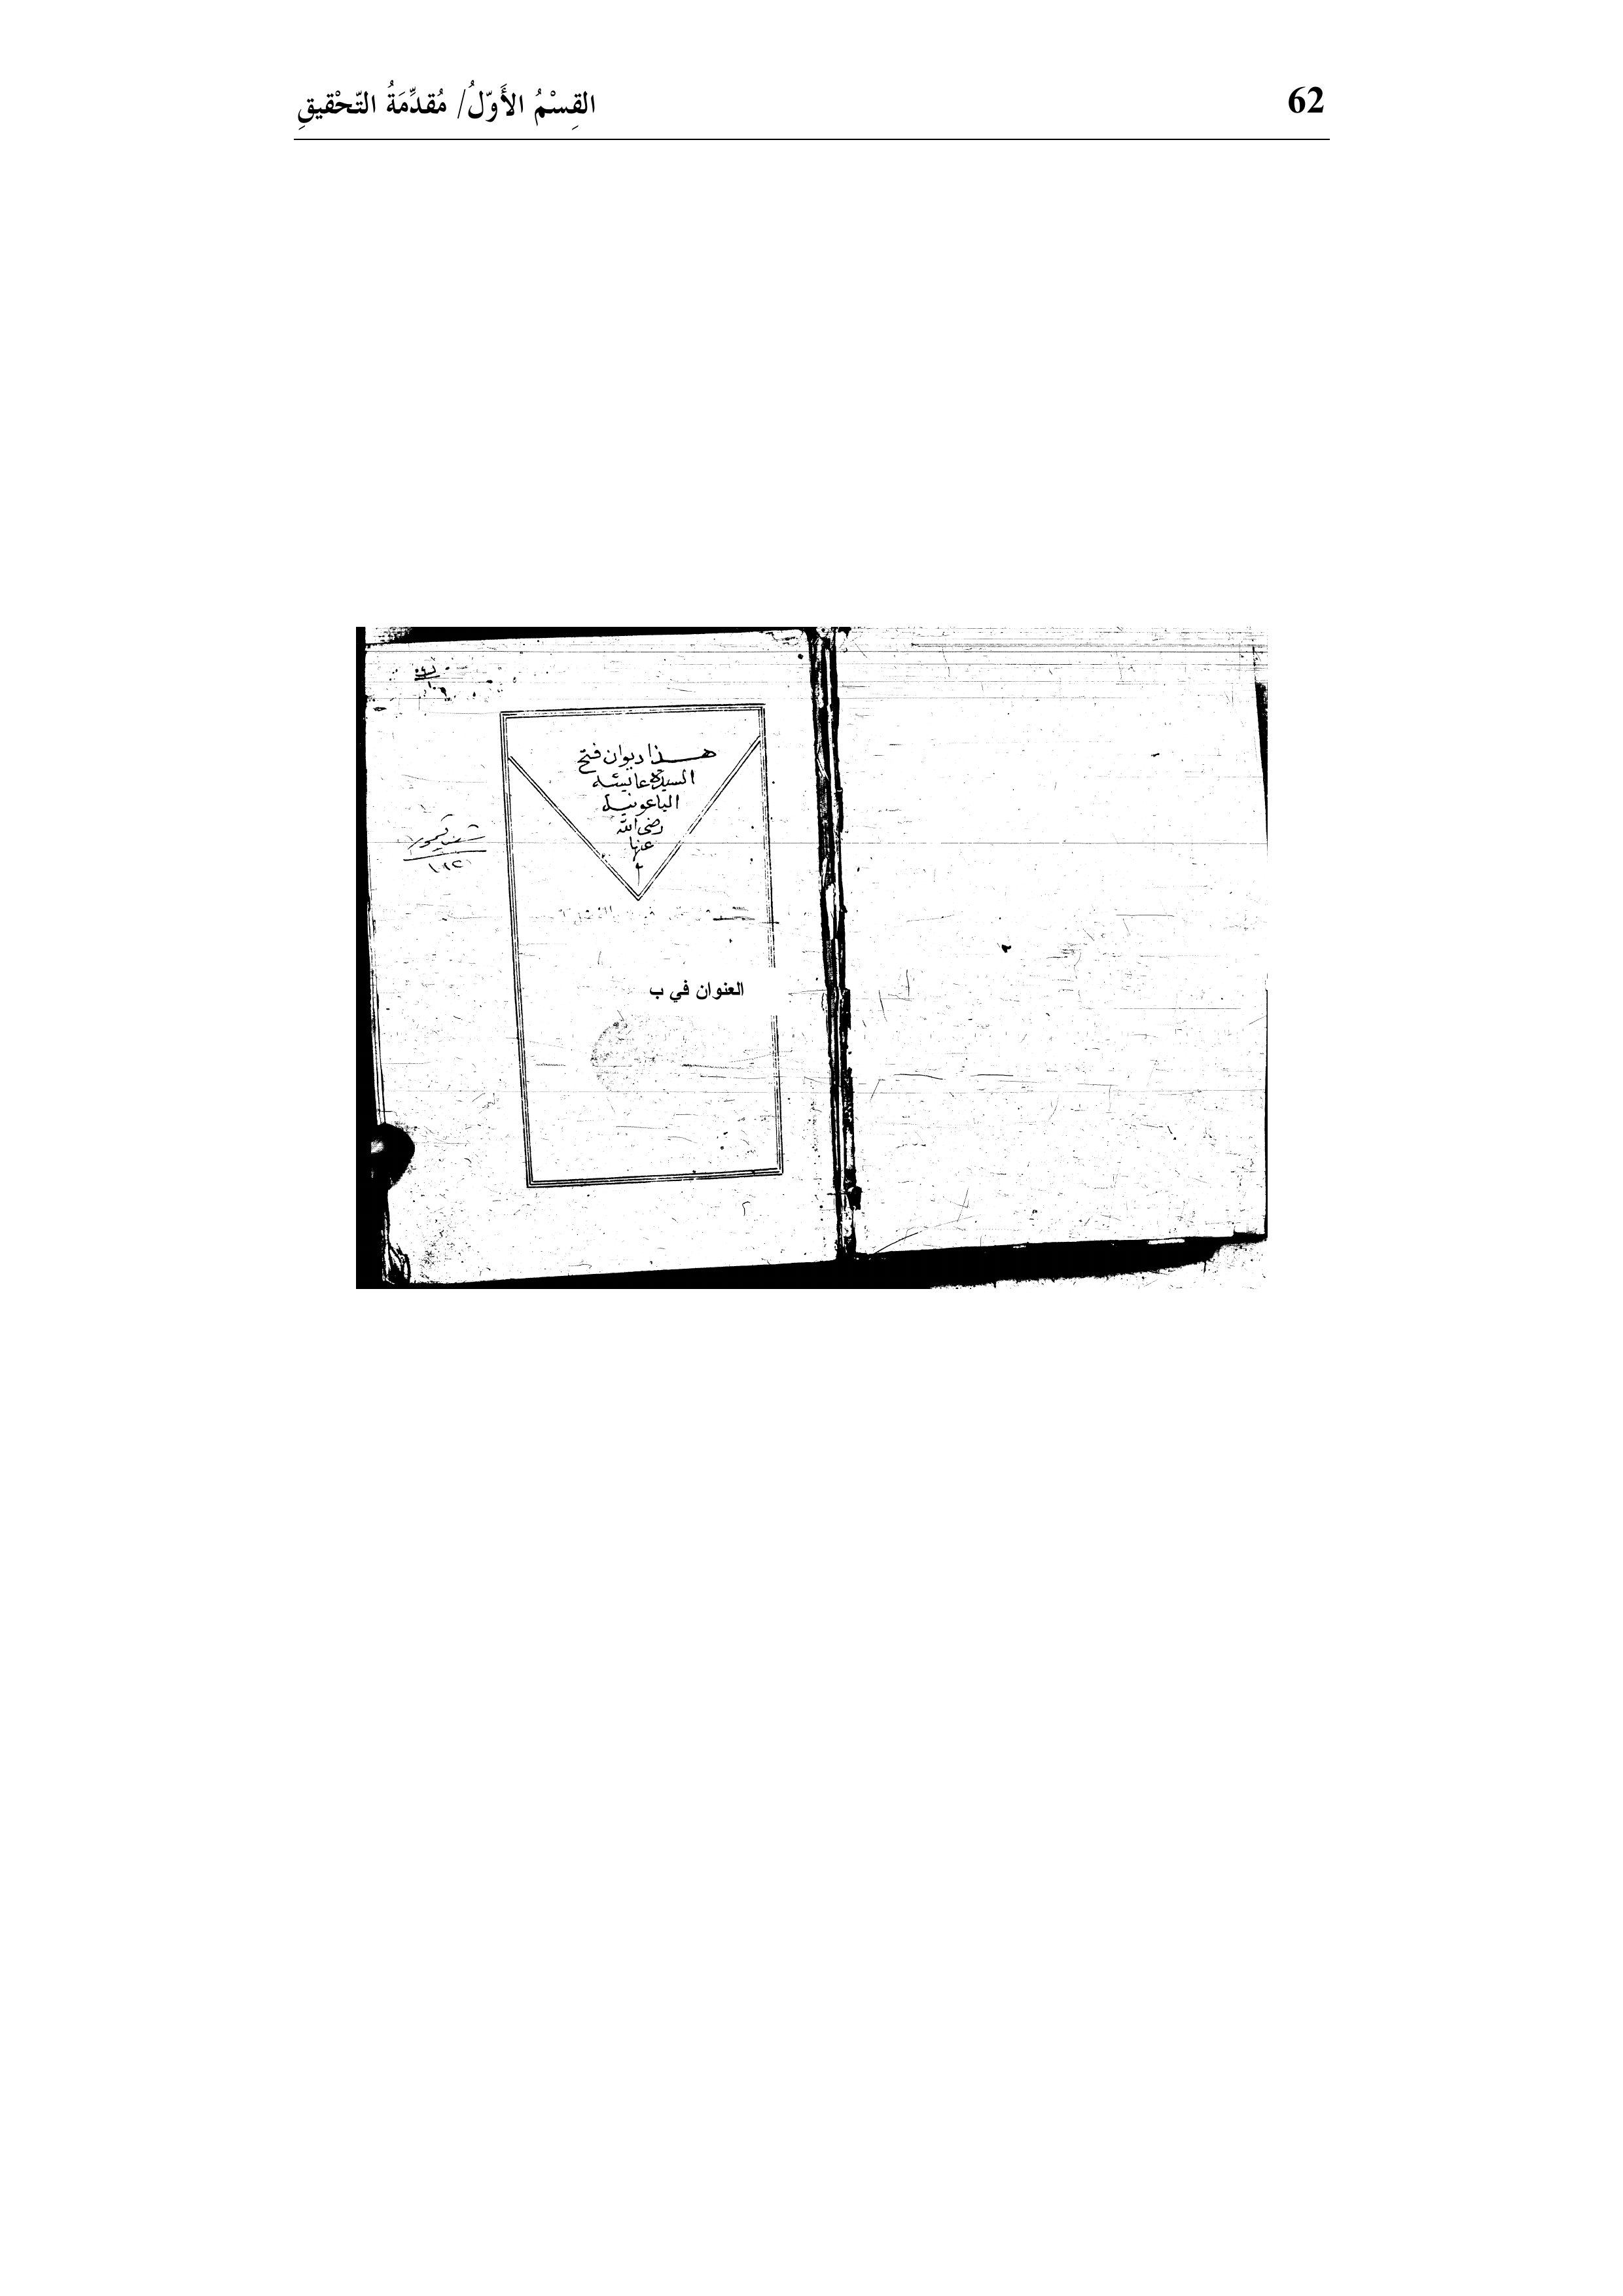 القِسْمُ الأَوّلُ/ مُقدِّمَةُ التّحْقيقِ
62
هذا ديوان فتح
السيدة عايشه
الباعونيه
رضى الله
عنها
العنوان في ب
٢